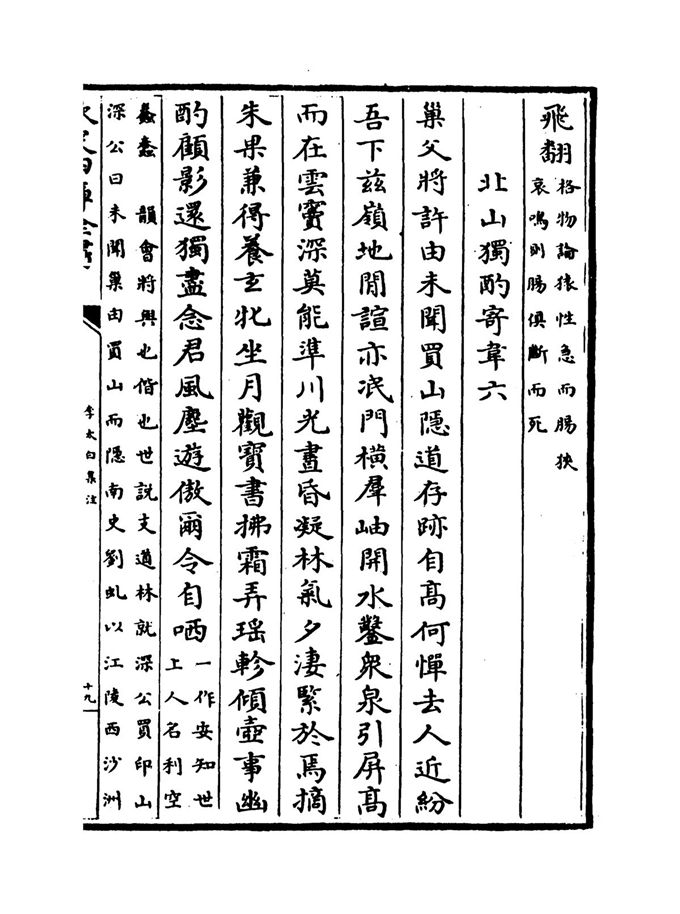 飛翻格物論猿性急而腸狹
哀鳴則腸俱斷而死
北山獨酌寄韋六
巢父將許由未聞買山隱道存跡自髙何憚去人近紛
吾下茲嶺地閒諠亦泯門橫羣岫開水鑿衆泉引屏髙
而在雲竇深莫能準川光晝昏凝林氣夕淒緊於焉摘
朱果兼得養玄牝坐月觀寶書拂霜弄瑶軫傾壺事幽
酌顧影還獨盡念君風塵遊傲爾令自哂一作安知世
上人名利空
蠢蠢 韻會將與也偕也世說支道林就深公買印山
深公曰未聞巢由買山而隱南史劉虬以江陵西沙洲
李太白集注
十九